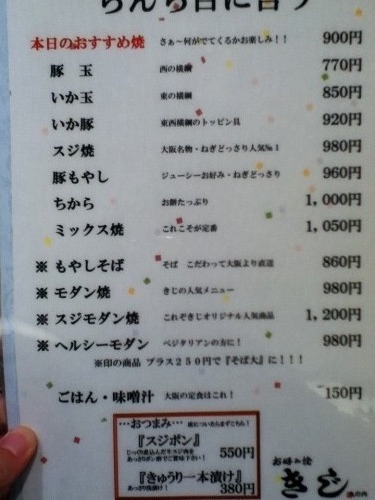 本日のおすすめ焼 さぁ～何がでてくるかお楽しみ！！ 900円
豚 玉 西の横綱 770円
いか玉 東の横綱 850円
いか豚 東西横綱のトッピン具 920円
スジ焼 大阪名物・ねぎどっさり人気№1 980円
豚もやし ジューシーお好み・ねぎどっさり 960円
ちから お餅たっぷり 1,000円
ミックス焼 これこそが定番 1,050円
※ もやしそば そば こだわって大阪より直送 860円
※ モダン焼 きじの人気メニュー 980円
※ スジモダン焼 これぞきじオリジナル人気商品 1,200円
※ ヘルシーモダン ベジタリアンの方に！ 980円
※印の商品 プラス２５０円で『そば大』に！！！
ごはん・味噌汁 大阪の定食はこれ！ 150円
…おつまみ…
『スジポン』
じっくり煮込んだ牛スジ肉を
あっさりポン酢でご賞味下さい！ 550円
『きゅうり一本漬け』
あっさり浅漬け！ 380円
お好み焼
きじ
丸の内